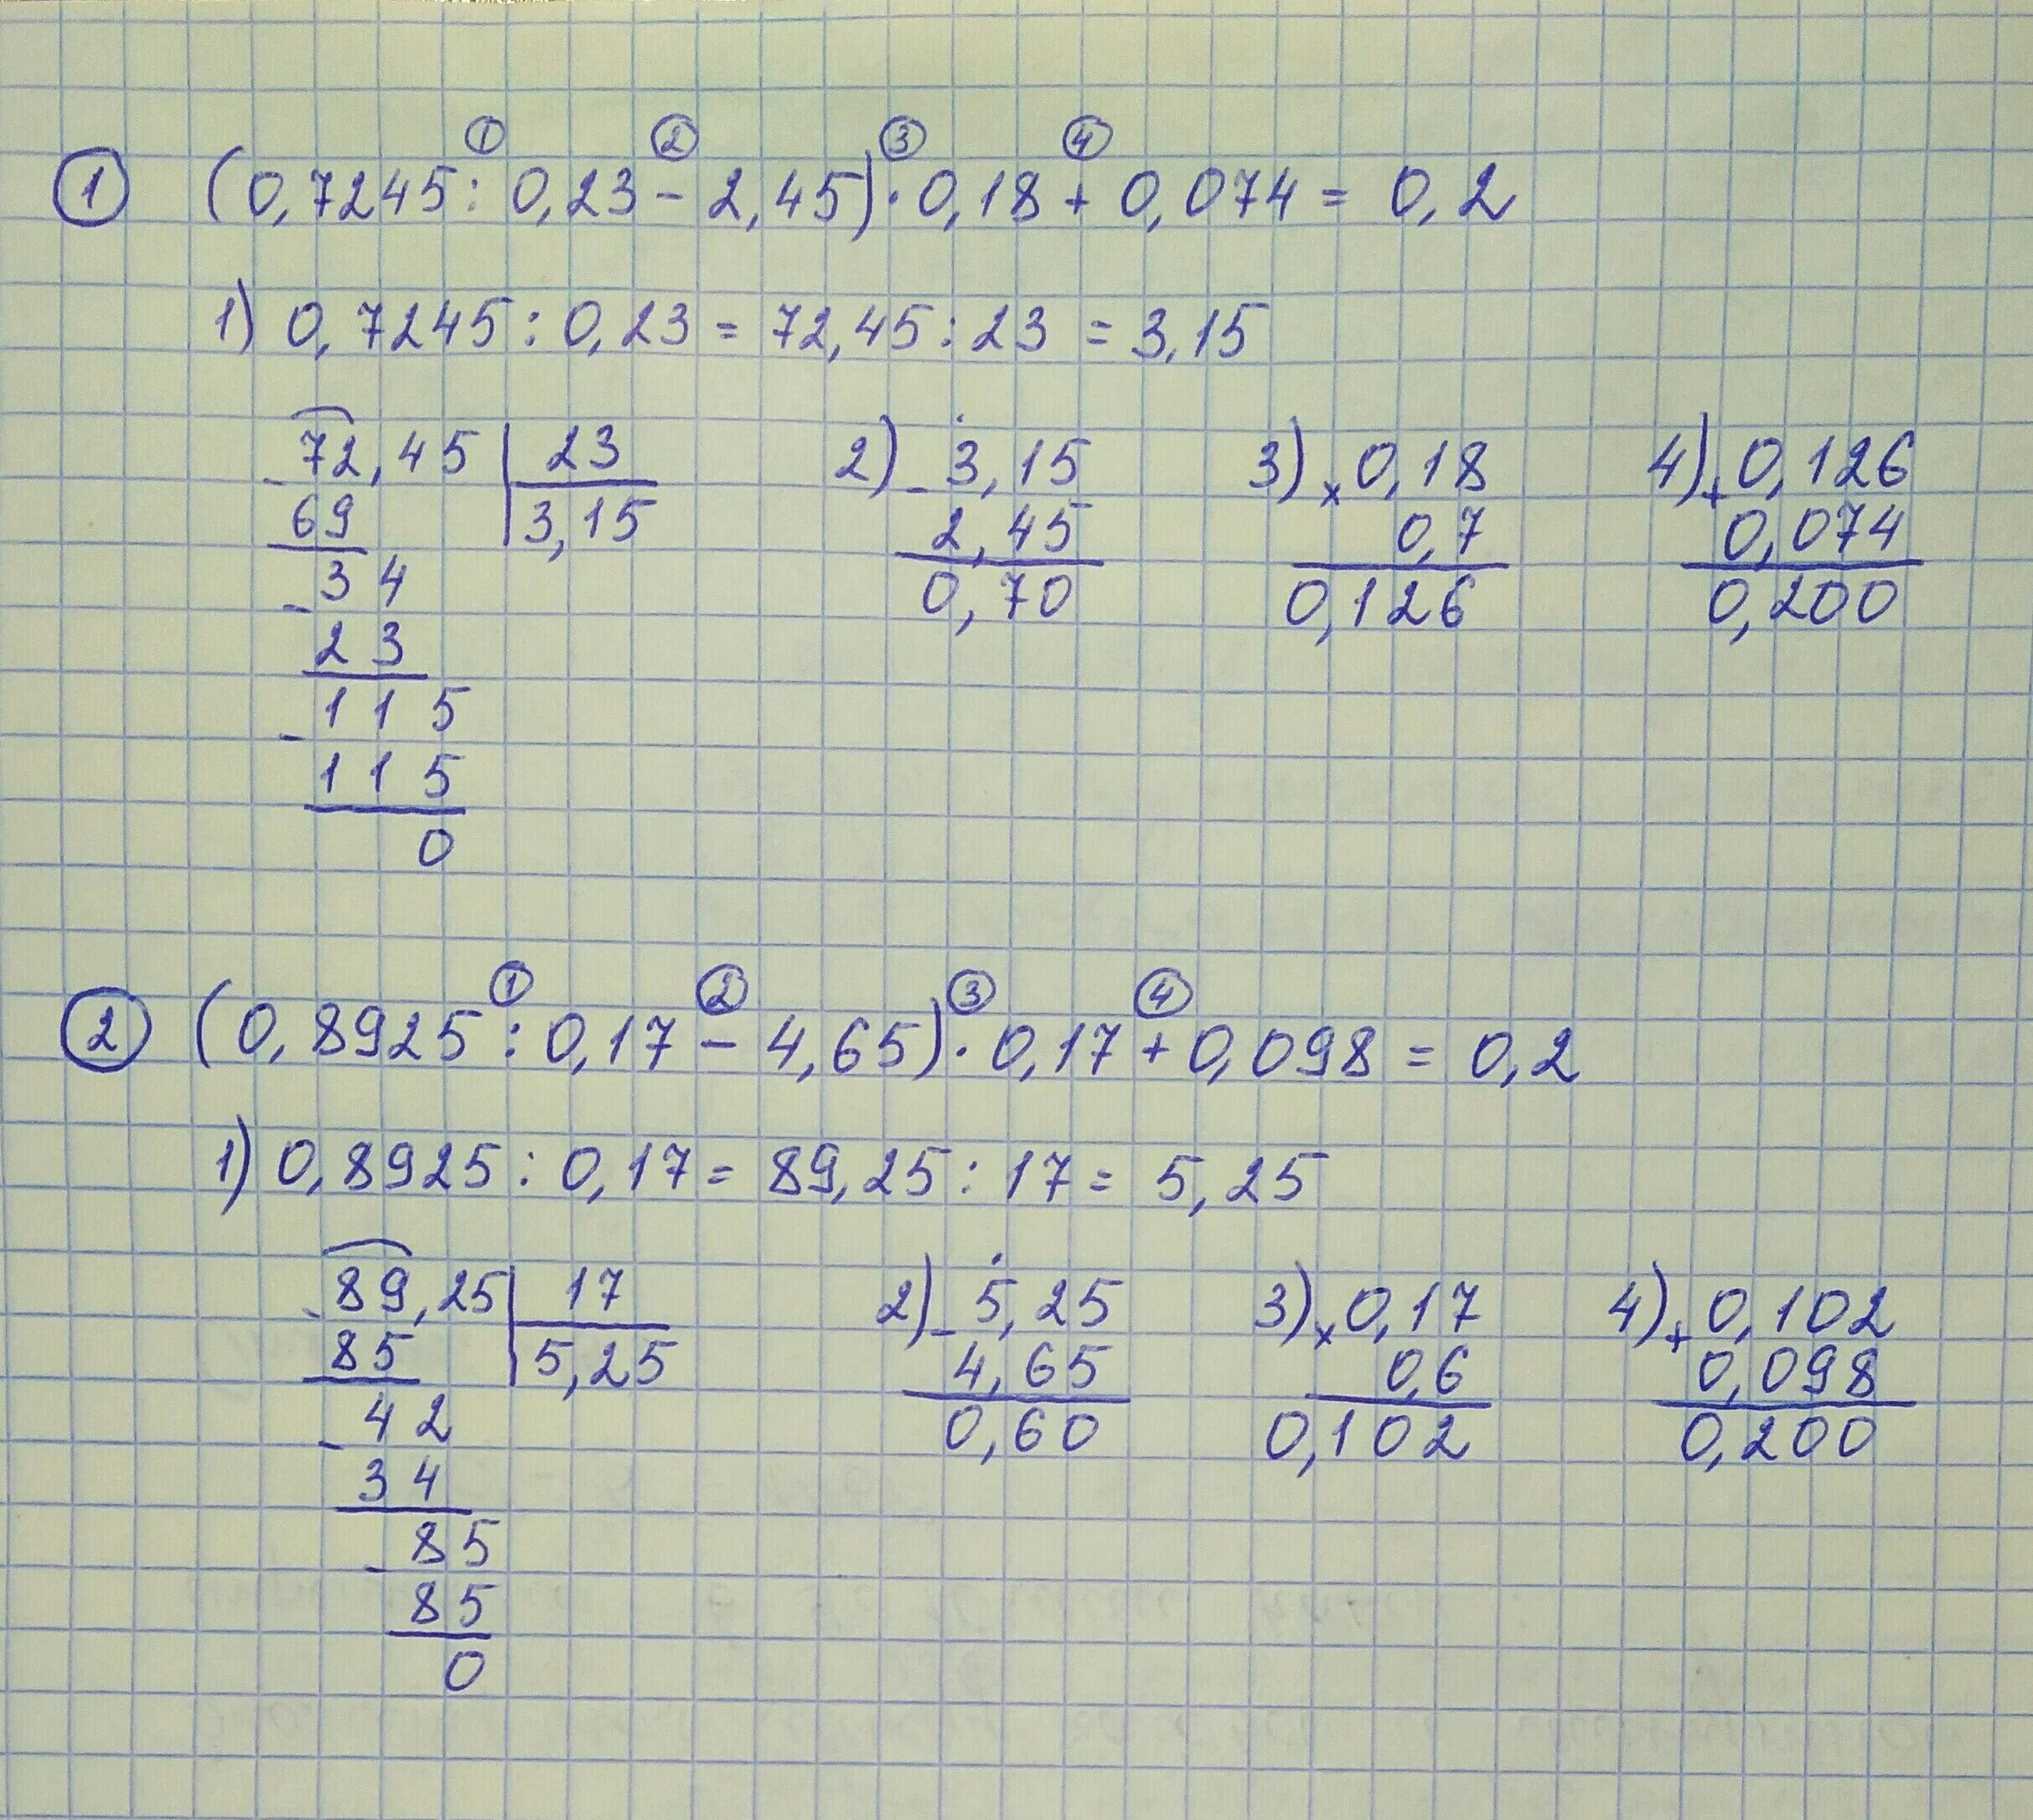 ① ② ③ ④
① (0,7245 : 0,23 − 2,45) · 0,18 + 0,074 = 0,2
1) 0,7245 : 0,23 = 72,45 : 23 = 3,15
− 72,45 | 23
69 | 3,15
− 34
23
− 115
115
0
2) − 3,15
2,45
0,70
3) × 0,18
0,7
0,126
4) + 0,126
0,074
0,200
① ② ③ ④
② (0,8925 : 0,17 − 4,65) · 0,17 + 0,098 = 0,2
1) 0,8925 : 0,17 = 89,25 : 17 = 5,25
− 89,25 | 17
85 | 5,25
− 42
34
− 85
85
0
2) − 5,25
4,65
0,60
3) × 0,17
0,6
0,102
4) + 0,102
0,098
0,200